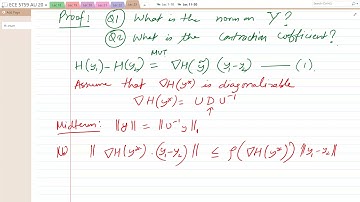 ECE 5759 AU 20
Proof: Q1 What is the norm on Y?
Q2 What is the contraction coefficient?
MVT
H(y₁) - H(y₂) = ∇H(ỹ) (y₁-y₂) —— (1).
Assume that ∇H(y*) is diagonalizable
∇H(y*) = U D U⁻¹
↑
Midterm: ||y|| = ||U⁻¹y||₁
|| ∇H(y*) · (y₁-y₂) || ≤ ρ(∇H(y*)) ||y₁-y₂||